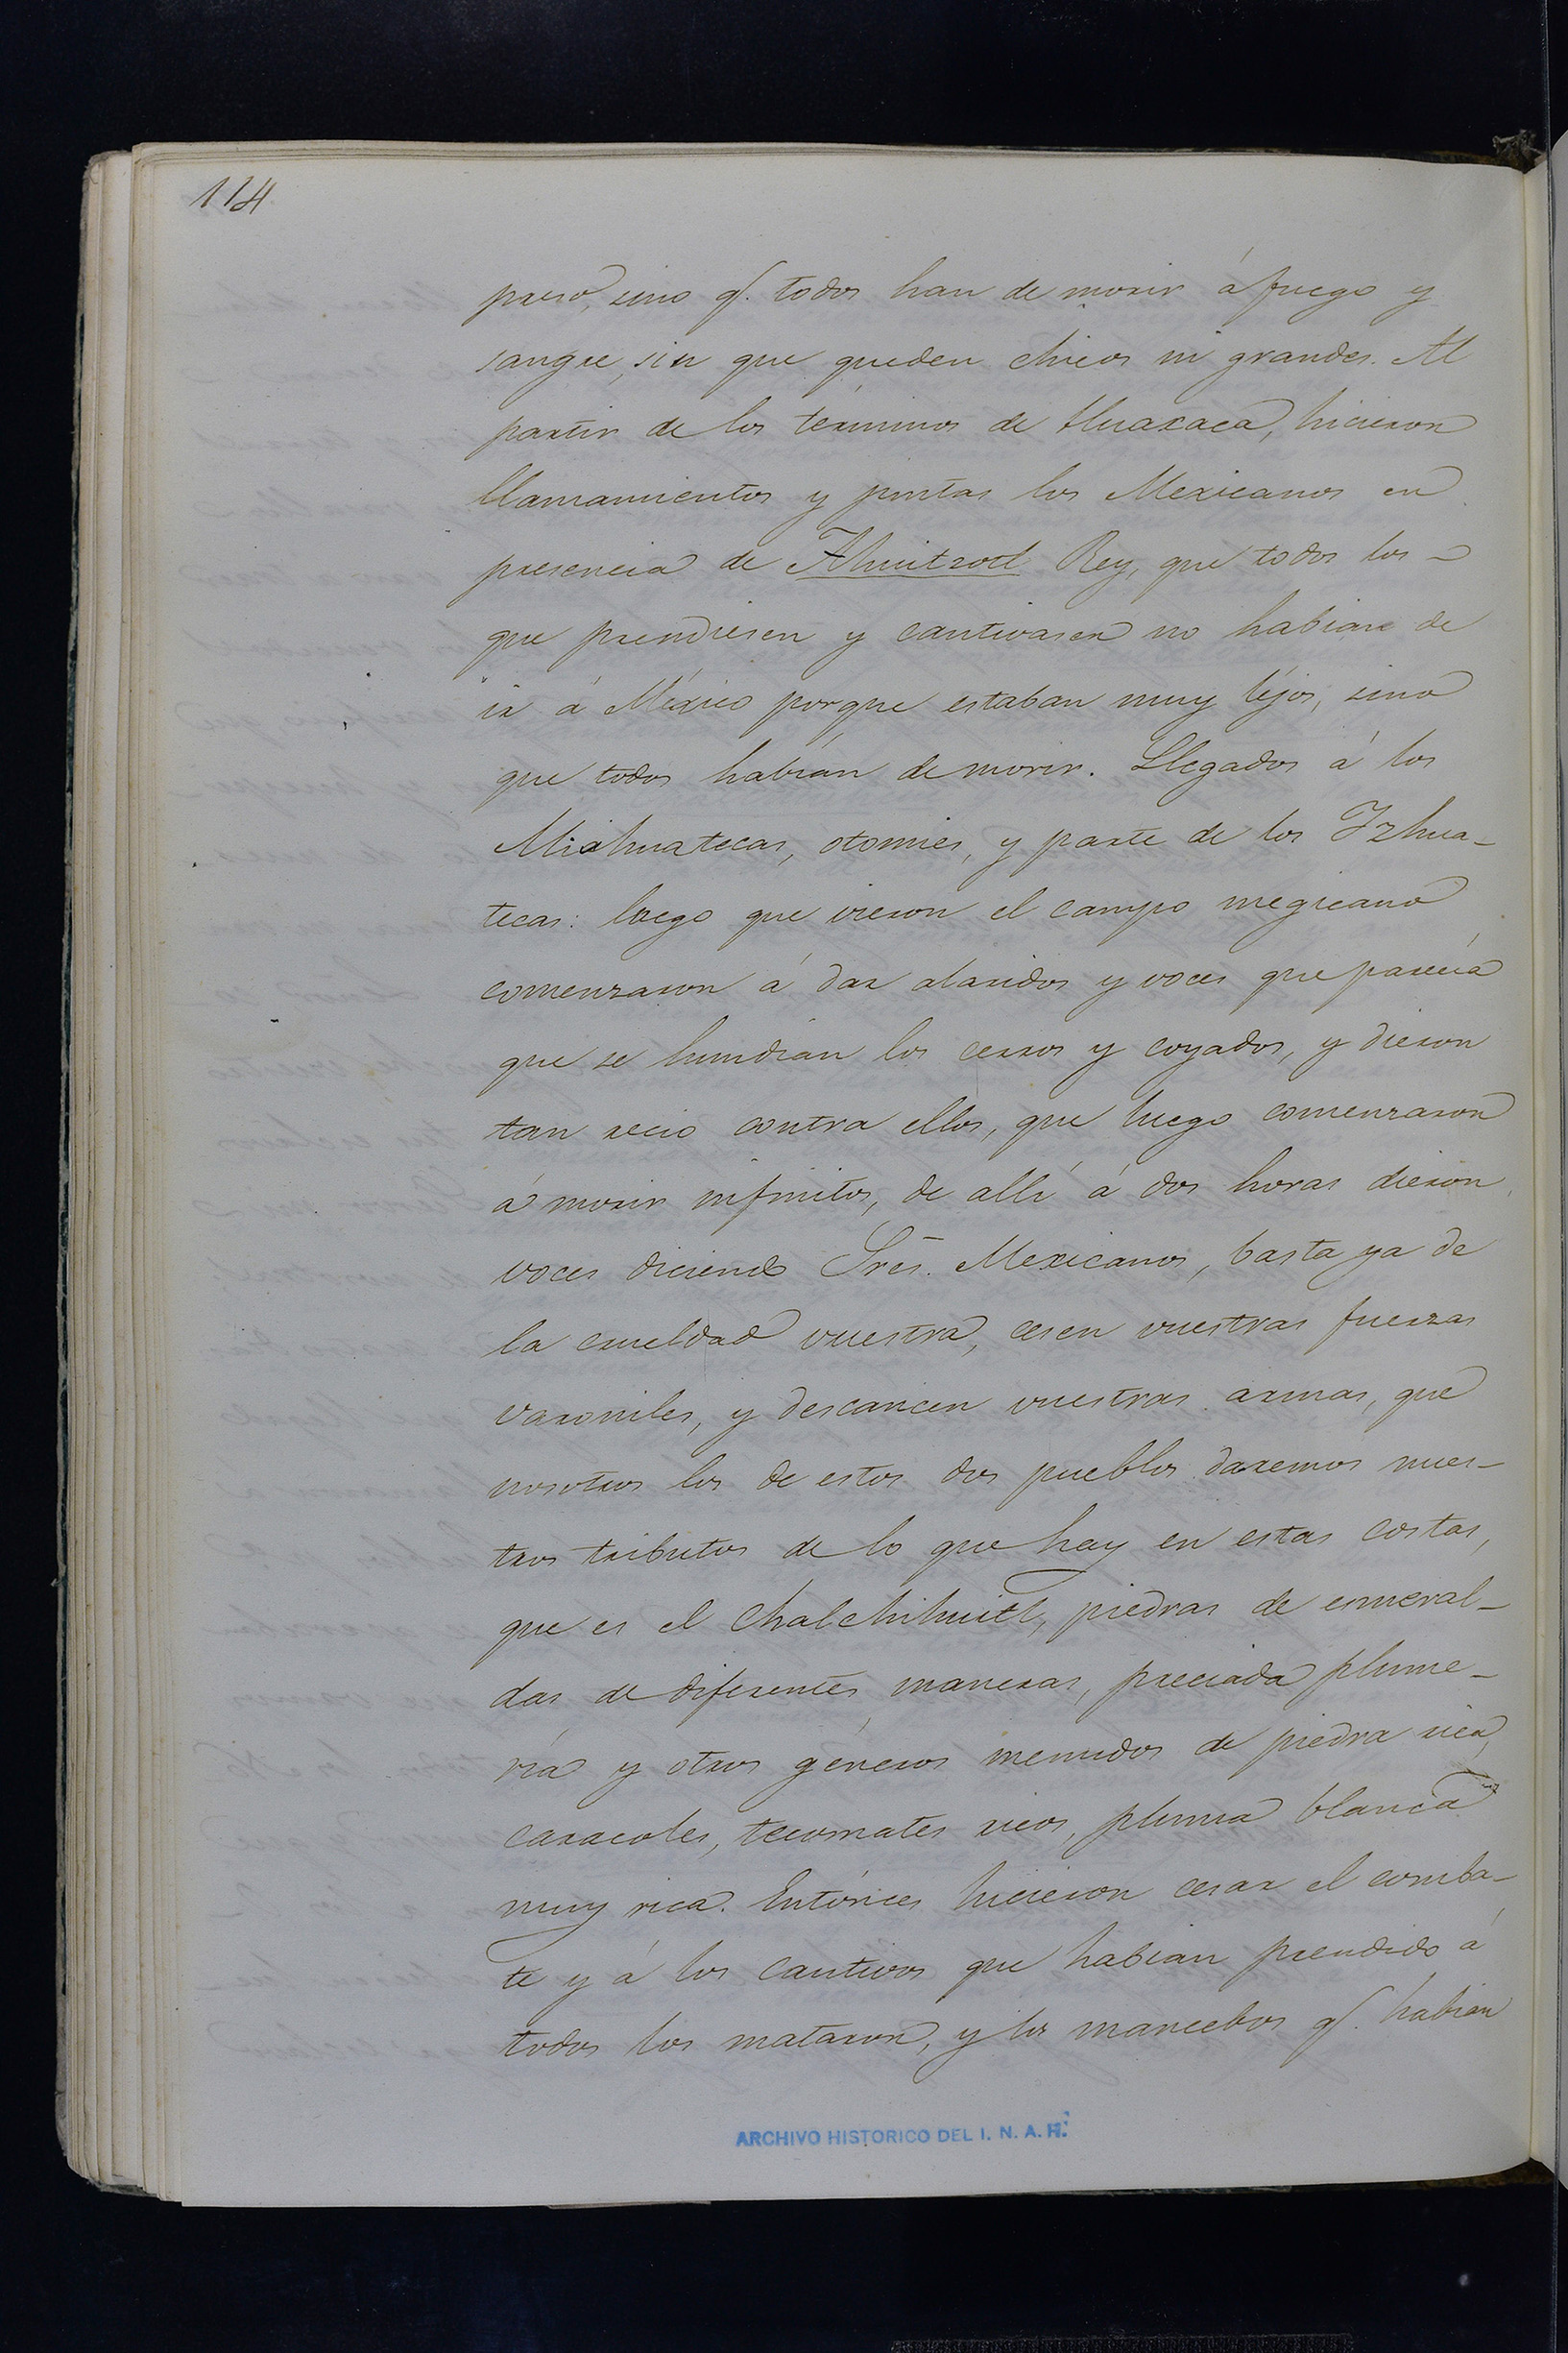 114
preso, sino q.e todos han de morir á fuego y
sangre, sin que queden chicos ni grandes. Al
partir de los términos de Huaxaca, hicieron
llamamientos y juntas los Mexicanos en
presencia de Ahuitzotl Rey, que todos los
que prendiesen y cautivasen no habian de
ir á México porque estaban muy léjos, sino
que todos habian de morir. Llegados á los
Miahuatecas, otomies, y parte de los Izhua-
tecas: luego que vieron el campo megicano
comenzaron á dar alaridos y voces que parecía
que se hundian los cerros y coyados, y dieron
tan recio contra ellos, que luego comenzaron
á morir infinitos, de allí á dos horas dieron
voces diciendo Sres. Mexicanos, basta ya de
la crueldad vuestra, cesen vuestras fuerzas
varoniles, y descancen vuestras armas, que
nosotros los de estos dos pueblos daremos nues-
tros tributos de lo que hay en estas costas,
que es el Chalchihuitl, piedras de esmeral-
das de diferentes maneras, preciada plume-
ría y otros géneros menudos de piedra rica,
caracoles, tecomates ricos, pluma blanca
muy rica. Entónces hicieron cesar el comba-
te y á los cautivos que habian prendido á
todos los mataron, y los mancebos q.e habian
ARCHIVO HISTORICO DEL I. N. A. H.